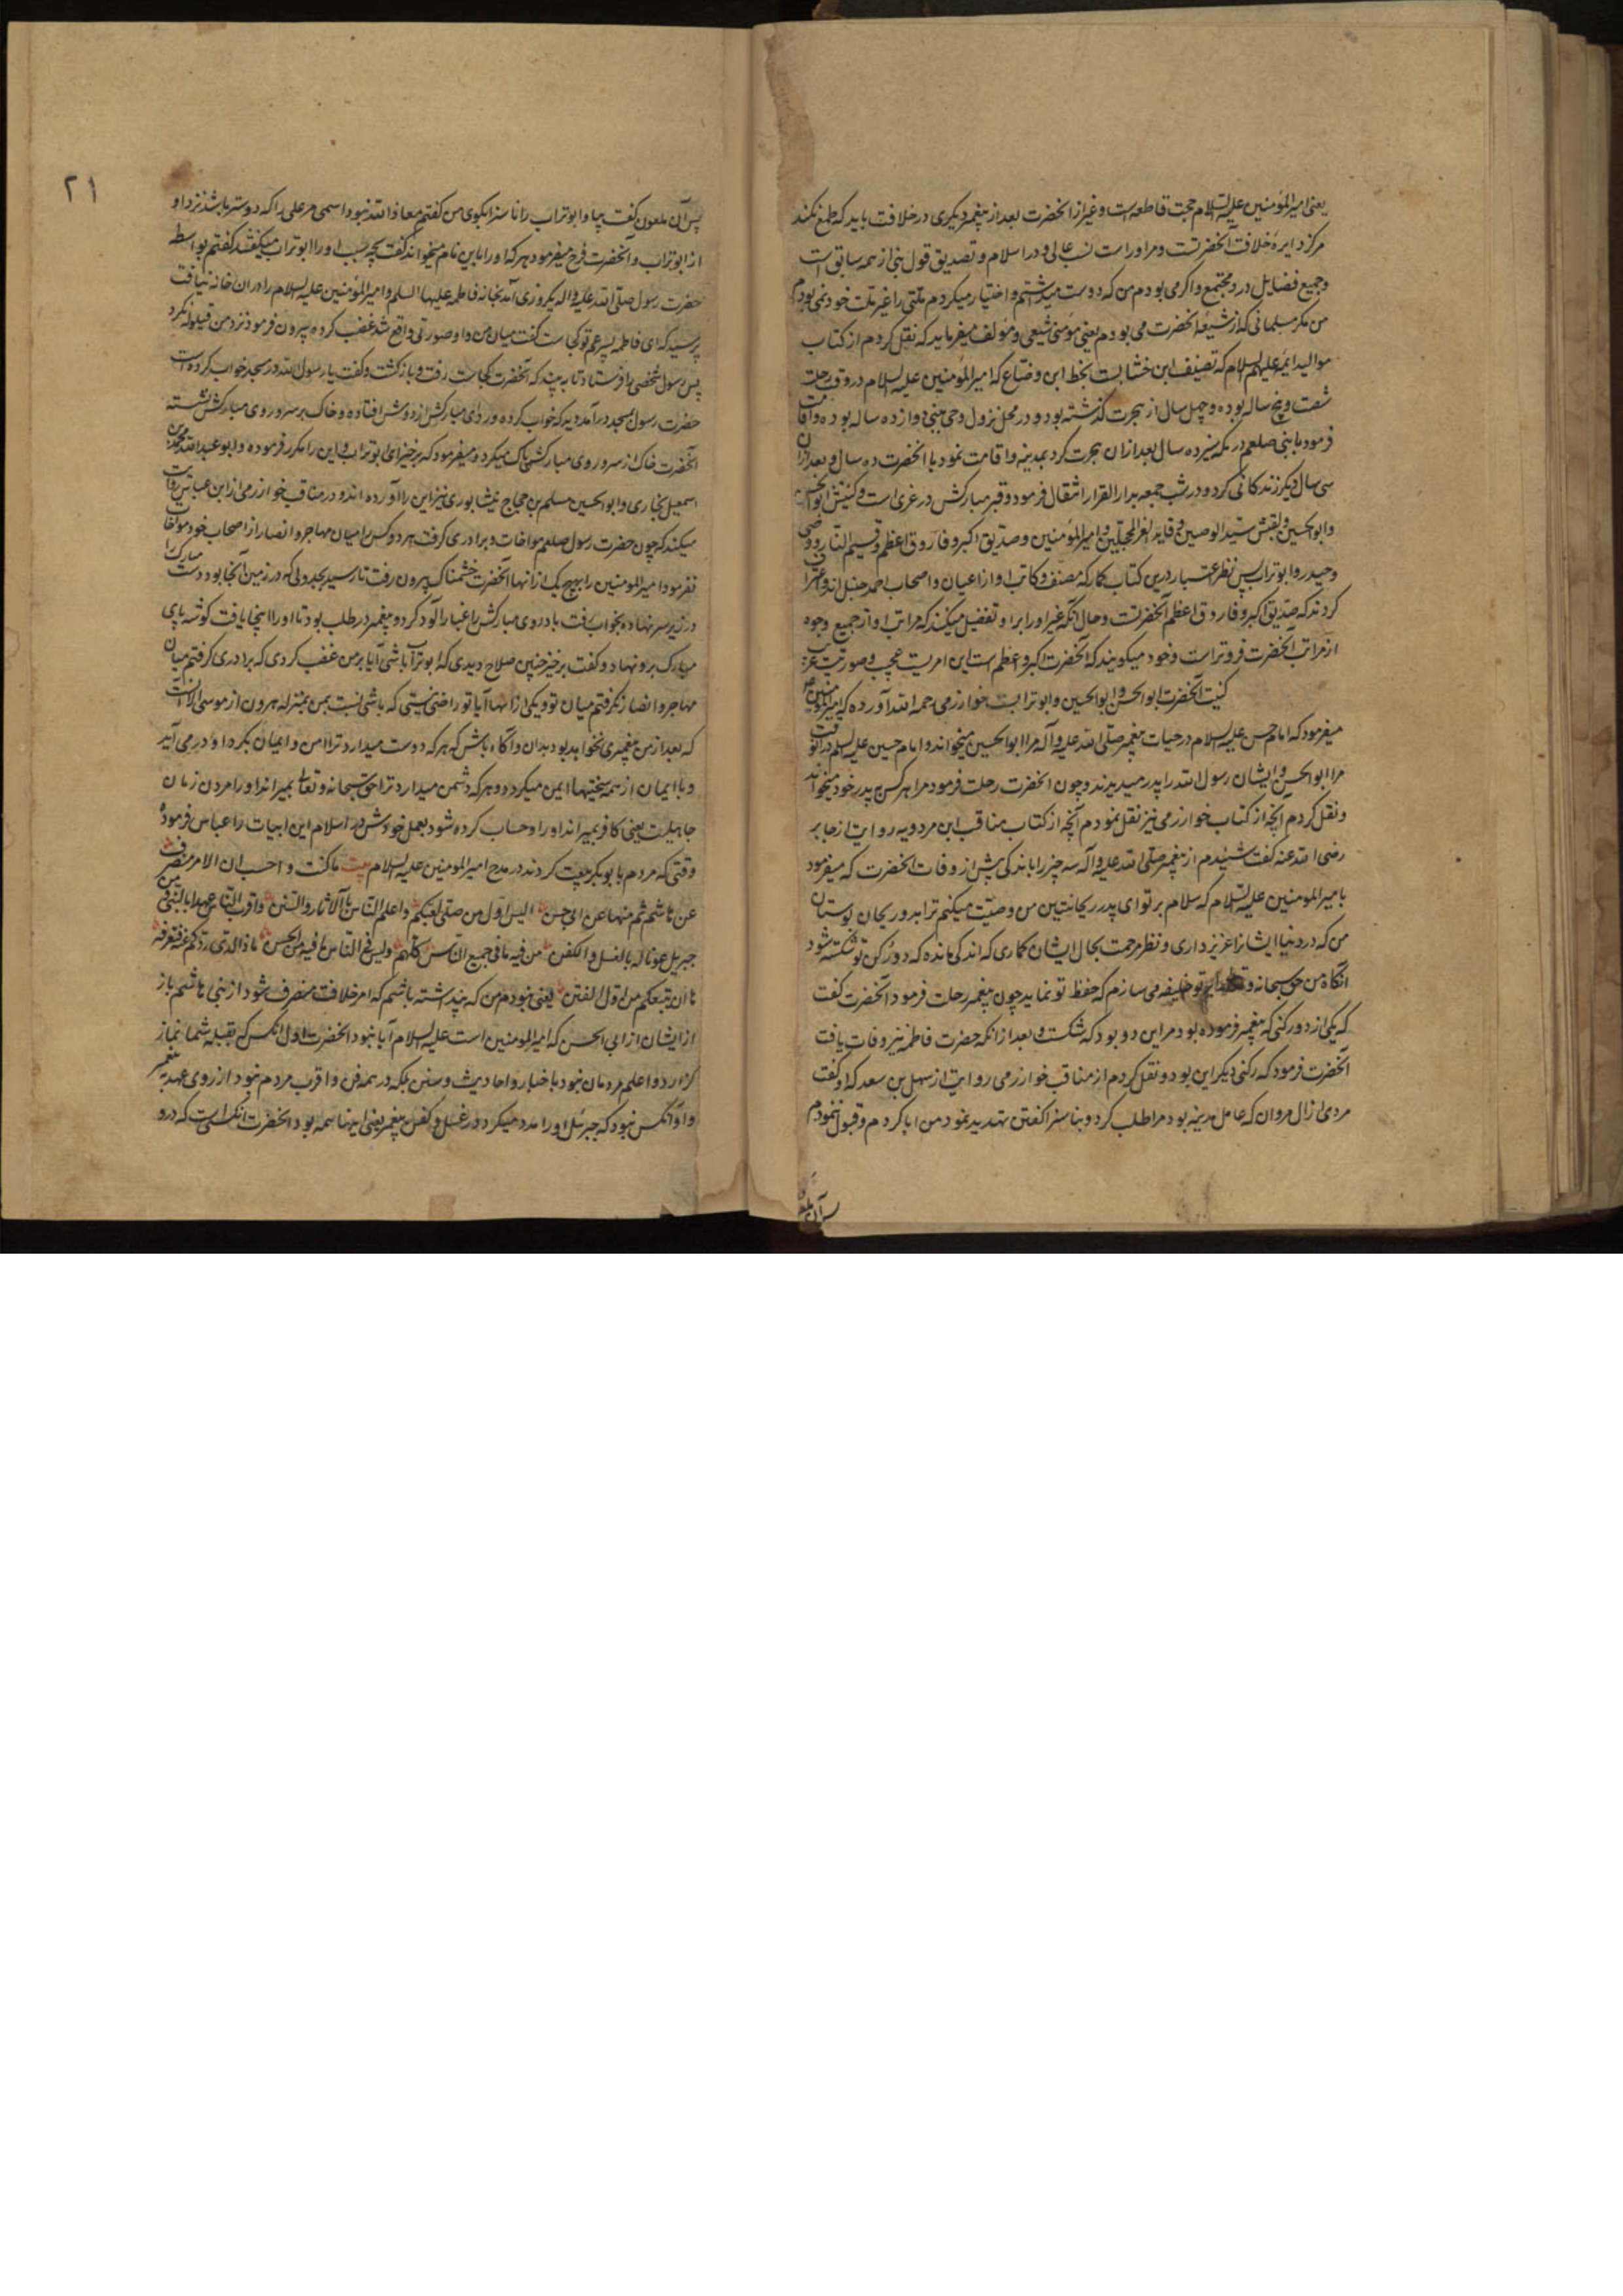 یعنی امیرالمؤمنین علیه السلام حجت قاطعه است و غیر از انحضرت بعد از پیغمبر دیگری در خلافت باید که طمع نکند
مرکز دایرهٔ خلافت آنحضرتست و مر او راست نسب عالی و در اسلام و تصدیق قول نبی از همه سابق است
و جمیع فضایل در و مجتمع و اکر می بودم من که دوست میداشتم و اختیار میکردم ملتی را غیر ملت خود نمی بودم
من مکر مسلمانی که از شیعهٔ انحضرت می بودم یعنی مؤمنی شیعی و مؤلف میفرماید که نقل کردم از کتاب
موالید ایمه علیهم السلام که تصنیف ابن خشابست بخط ابن وضاع که امیرالمؤمنین علیه السلام در وقت رحلت
شصت و پنج ساله بوده و چهل سال از هجرت گذشته بود و در محل نزول وحی بنبی دوازده ساله بوده و اقامت
فرمود با نبی صلعم در مکه سیزده سال بعد از ان هجرت کرد بمدینه و اقامت نمود با انحضرت ده سال و بعد از ان
سی سال دیکر زندکانی کرد و در شب جمعه بدار القرار انتقال فرمود و قبر مبارکش در غری است و کنیتش ابوالحسن
و ابوالحسین و لقبش سید الوصیین و قاید الغر المحجلین و امیرالمؤمنین و صدیق اکبر و فاروق اعظم و قسیم النار و وصی
و حیدر و ابوتراب پس نظر اعتبار درین کتاب کمار که مصنف و کاتب او از اعیان و اصحاب احمد حنبل اند و اعتراف
کردند که صدیق اکبر و فاروق اعظم آنحضرتست و حال آنکه غیر او را بر او تفضیل میکنند که مراتب او از جمیع وجوه
از مراتب آنحضرت فروتر است و خود میکویند که آنحضرت اکبر و اعظم است این امریست عجب و صورتیست غریب
کنیت آنحضرت ابوالحسن و ابوالحسین و ابوترابست خوارزمی رحمه الله آورده که امیرالمؤمنین
میفرمود که امام حسن علیه السلام در حیات پیغمبر صلی الله علیه و آله مرا ابوالحسین میخواند و امام حسین علیه السلم در انوقت
مرا ابوالحسن و ایشان رسول الله را پدر میدیدند و چون انحضرت رحلت فرمود مرا هر کس پدر خود میخواند
و نقل کردم آنچه از کتاب خوارزمی نیز نقل نمودم آنچه از کتاب مناقب ابن مردویه روایت از جابر
رضی الله عنه گفت شنیدم از پیغمبر صلی الله علیه و آله سه چیز را باندکی پیش از وفات انحضرت که میفرمود
با میرالمومنین علیه السلام که سلام بر تو ای پدر ریحانتین من وصیت میکنم ترا بدو ریحان بوستان
من که در دنیا ایشانرا عزیز داری و نظر مرحمت بحال ایشان کماری که اندکی مانده که دو رکن تو شکسته شود
انکاه من حق سبحانه و تعالی را بر تو خلیفه می سازم که حفظ تو نماید چون پیغمبر رحلت فرمود آنحضرت کفت
که یکی از دو رکنی که پیغمبر فرموده بود مر این دو بود که شکست و بعد از انکه حضرت فاطمه نیز وفات یافت
آنحضرت فرمود که رکنی دیکر این بود و نقل کردم از مناقب خوارزمی روایت از سهل بن سعد که او کفت
مردی از ال مروان که عامل مدینه بود مرا طلب کرد و بنا سزا کفتن تهدید نمود من ابا کردم و قبول ننمودم
پس آن ملعون
۲۱
پس آن ملعون کفت بیا و ابوتراب را ناسزا بکوی من کفتم معاذ الله نبود اسمی مر علی را که دوستر باشد نزد او
از ابوتراب و آنحضرت فرح میفرمود هر که او را باین نام میخواند کفت بچه سبب او را ابوتراب میکفتند کفتم بواسطه
حضرت رسول صلی الله علیه و اله یکروزی آمد بخانه فاطمه علیها السلم و امیرالمؤمنین علیه السلام را در ان خانه نیافت
پرسید که ای فاطمه پسر عم تو کجاست کفت میان من و او صورتی واقع شد غضب کرده بیرون فرمود نزد من قیلوله نکرد
پس رسول شخصی را فرستاد تا به بیند که آنحضرت کجاست رفت و بازکشت و کفت یا رسول الله در مسجد خواب کرده است
حضرت رسول بمسجد در آمد دید که خواب کرده و ردای مبارکش از دوشش افتاده و خاک بر سر و روی مبارکش نشسته
آنحضرت خاک از سر و روی مبارکش پاک میکرد و میفرمود که برخیز ای ابوتراب و این را مکرر فرموده و ابو عبدالله محمد بن
اسمعیل بخاری و ابوالحسین مسلم بن حجاج نیشابوری نیز این را آورده اند و در مناقب خوارزمی از ابن عباس روایت
میکند که چون حضرت رسول صلعم مواخات و برادری کرفت هر دو کس را میان مهاجر و انصار از اصحاب خود مواخات
نفرمود امیرالمومنین را بهیچ یک از انها آنحضرت خشمناک بیرون رفت تا رسید بجدولی که در زمین آنجا بود دست مبارک را
در زیر سر نهاده بخواب رفت باد روی مبارکش را غبار آلود کرد و پیغمبر در طلب بود تا او را اینجا یافت کوشه پای
مبارک برو نهاد و کفت برخیز چنین صلاح دیدی که ابوتراب باشی آیا بر من غضب کردی که برادری کرفتم میان
مهاجر و انصار و نکرفتم میان تو و یکی از انها آیا تو راضی نیستی که باشی نسبت بمن بمنزله هرون از موسی الا انست
که بعد از من پیغمبری نخواهد بود بدان و آکاه باش که هر که دوست میدارد ترا امن و ایمان بکرد او در می آید
و با ایمان از همه سختیها ایمن میکردد و هر که دشمن میدارد ترا حق سبحانه و تعالی بمیراند او را مردن زمان
جاهیلت یعنی کافر بمیراند او را و حساب کرده شود بعمل خودش در اسلام این ابیات را عباس فرموده
وقتی که مردم با بوبکر بیعت کردند در مدح امیرالمومنین علیه السلام بیت ما کنت و احسب ان الامر منصرف
عن هاشم ثم منها عن ابی حسن الیس اول من صلی لقبلتکم و اعلم الناس بالآثار و السنن و اقرب الناس عهدا بالنبی و من
جبریل عونا له بالغسل و الکفن من فیه ما فی جمیع الناس کلهم و لیس فی الناس ما فیه من الحسن ماذا الذی ردکم عنه فنعرفه
ها ان بیعتکم من اول الفتن یعنی نبودم من که پنداشته باشم که امر خلافت منصرف شود از بنی هاشم باز
از ایشان از ابی الحسن که امیرالمومنین است علیه السلام آیا نبود انحضرت اول انکس که بقبله شما نماز
کزارد و اعلم مردمان نبود باخبار و احادیث و سنن بلکه در همه فن و اقرب مردم نبود از روی عهد به پیغمبر
و او آنکس نبود که جبرئیل او را مدد میکرد در غسل و کفن پیغمبر یعنی اینها همه بود و انحضرت انکس است که درو